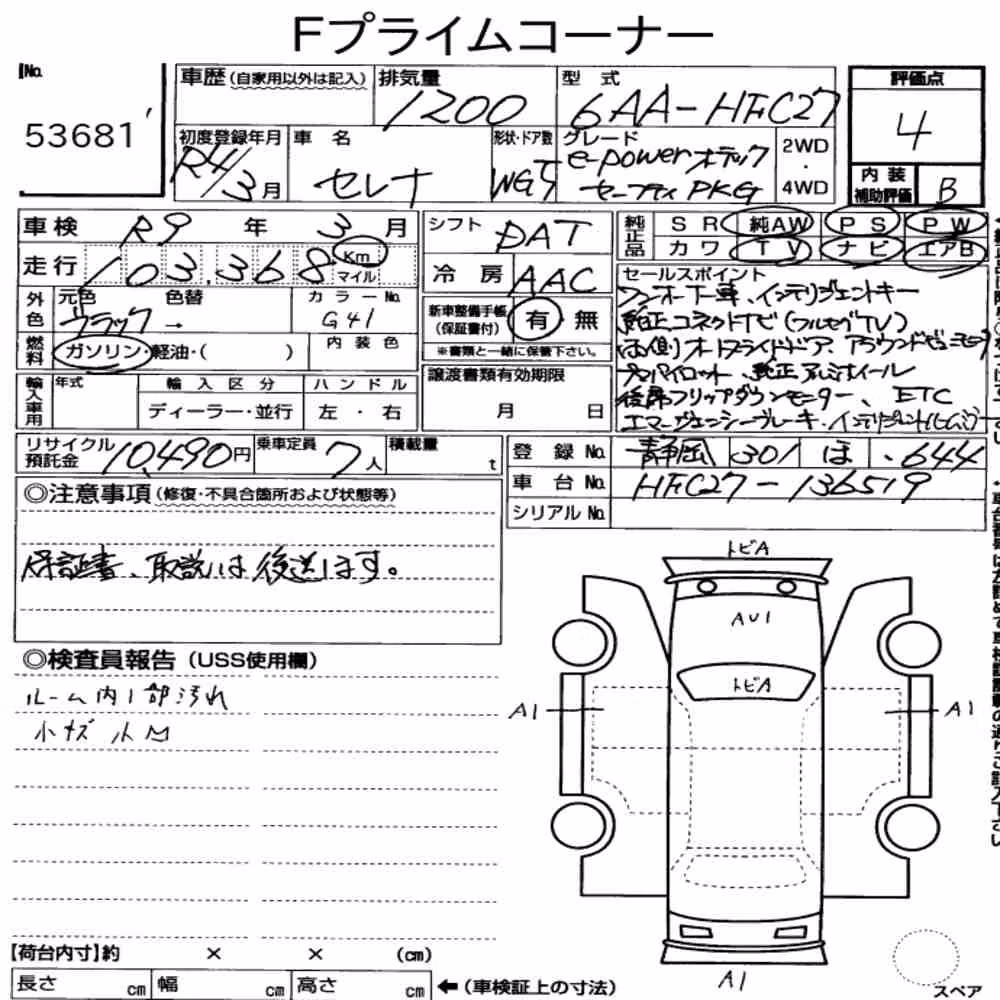 Fプライムコーナー
No.
53681
車歴(自家用以外は記入)
排気量
1200
型式
6AA-HFC27
評価点
4
初度登録年月
R4/3月
車名
セレナ
形状・ドア数
WG5
グレード
e-power オーテック
セーフティPKG
2WD
・
4WD
内装
補助評価
B
車検 R9 年 3 月
走行 103,368 Km
マイル
シフト DAT
冷房 AAC
純正品
SR 純AW PS PW
カワ TV ナビ エアB
外色
元色 色替 カラーNo.
ブラック → G41
燃料
ガソリン・軽油・( )
内装色
新車整備手帳
(保証書付)
有 無
※書類と一緒に保管下さい。
セールスポイント
ワンオーナー車、インテリジェントキー
純正コネクトナビ(フルセグTV)
両側オートスライドドア、アラウンドビューモニタ
プロパイロット、純正アルミホイール
後席フリップダウンモニター、ETC
エマージェンシーブレーキ、インテリジェント
輸入車用
年式 輸入区分 ハンドル
ディーラー・並行 左・右
譲渡書類有効期限
月 日
リサイクル
預託金
10,490円
乗車定員
7人
積載量
t
登録No. 静岡 301 ほ ・644
車台No. HFC27-136519
シリアルNo.
◎注意事項(修復・不具合箇所および状態等)
保証書、取説は後送します。
◎検査員報告(USS使用欄)
ルーム内1部汚れ
小キズ 小凹
トビA
AU1
トビA
A1
A1
A1
【荷台内寸】約 × × (cm)
長さ cm 幅 cm 高さ cm
←(車検証上の寸法)
スペア